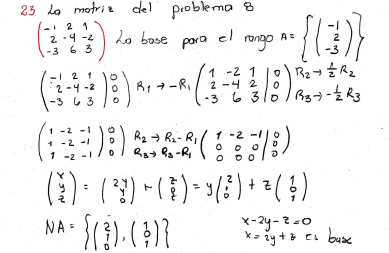 23 La matriz del problema 8
(-1 2 1
2 -4 -2
-3 6 3) La base para el rango A = {(-1
2
-3)}
(-1 2 1 | 0
2 -4 -2 | 0
-3 6 3 | 0) R1 → -R1 (1 -2 -1 | 0
2 -4 -2 | 0
-3 6 3 | 0) R2 → 1/2 R2
R3 → -1/3 R3
(1 -2 -1 | 0
1 -2 -1 | 0
1 -2 -1 | 0) R2 → R2 - R1
R3 → R3 - R1 (1 -2 -1 | 0
0 0 0 | 0
0 0 0 | 0)
(x
y
z) = (2y
y
0) + (z
0
z) = y(2
1
0) + z(1
0
1)
NA = {(2
1
0), (1
0
1)}
x - 2y - z = 0
x = 2y + z es base